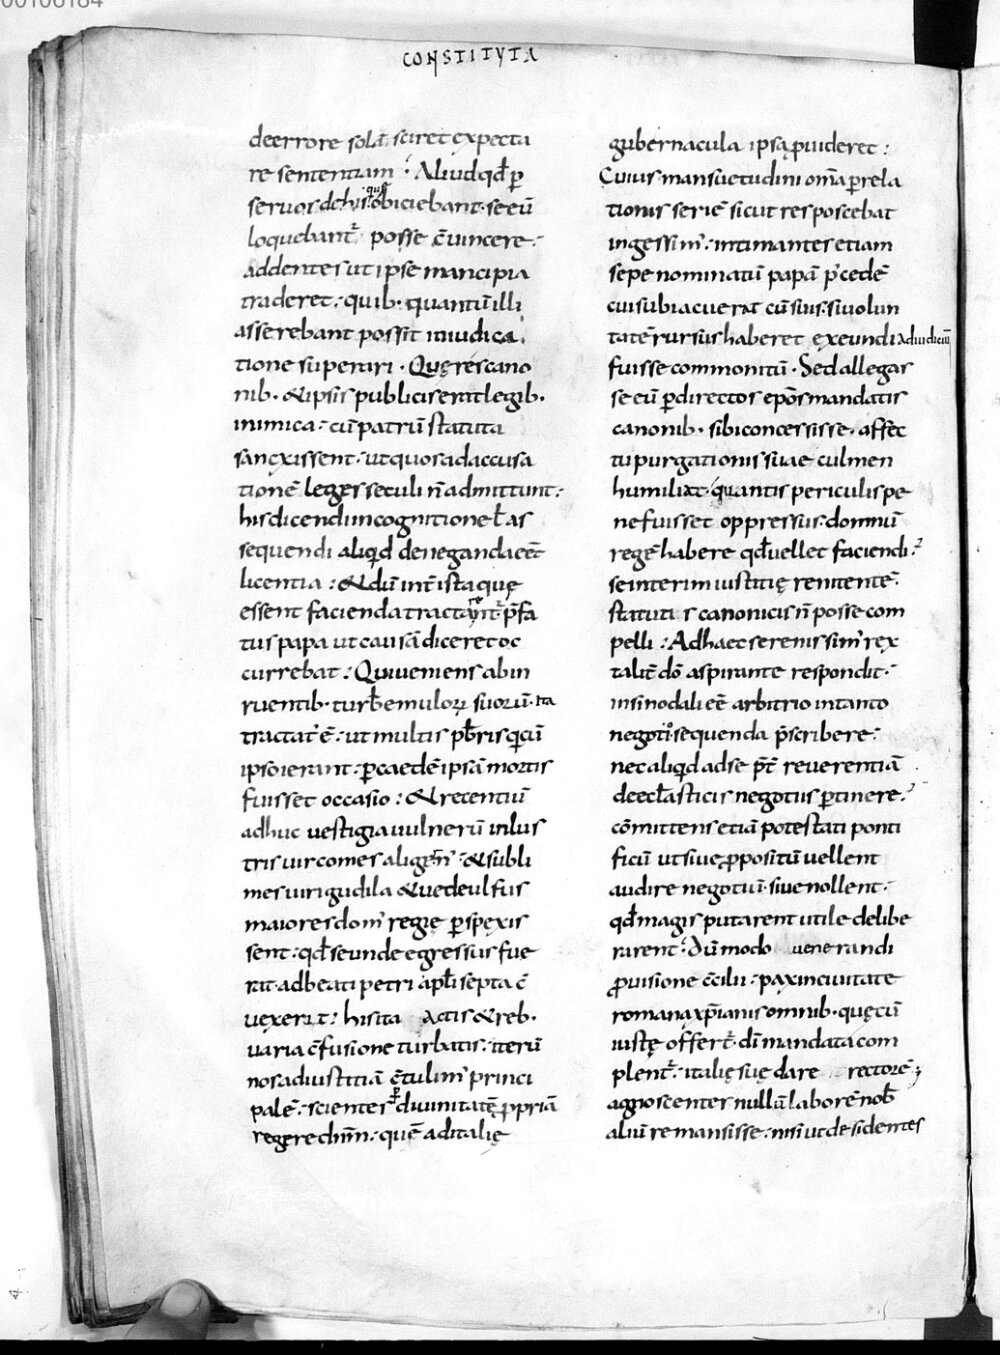 00106184
CONSTITVTA
deerrore solā sciret expecta
re sententiam : Aliud qđ p̄
seruos dehis que obiciebant se eū
loquebant᷑ posse c̄uincere :
addentes ut ipse mancipia
traderet : quib · quantū illi
asserebant possit iniudica
tione superari · Quę res cano
nib · & ipsis publicis erat legib ·
inimica : cū patrū statuta
sancxissent · ut quos adaccusa
tionē leges seculi n̄ admittunt :
his dicendi incognitione ł as
sequendi aliqđ deneganda eēt
licentia : & dū int̄ ista quę
essent facienda tractarent᷑ p̄fa
tus papa ut causā diceret oc
currebat : Qui ueniens abin
ruentib · turb̄ emuloꝝ suorū · ita
tractat᷑ ē : ut multis pb̄ris qui cū
ipso ierant : p̱ caedē ipsā mortis
fuisset occasio : & recentiū
adhuc uestigia uulnerū inlus
tris uir comes aligern᷑ : & subli
mes uiri gudila & uedeulfus
maiores dom᷑ regię p̱spexis
sent : qđ se unde egressus fue
rit · adbeati petri apl̄i septa c̄
uexerit : his ita actis & reb ·
uaria c̄fusione turbatis : iterū
nos adiustitiā c̄tulim᷑ princi
palē : scientes p̱ diuinitatē ꝓpriā
regere chm̄ : quē aditalię
gubernacula ipsa ꝓuideret :
Cuius mansuetudini om̄a p̱ rela
tionis seriē sicut res poscebat
ingessim᷑ : intimantes etiam
sepe nominatū papā p᷑ cedē
cui subiacuerat cū suis : si uolun
tatē rursus haberet exeundi adiudiciū
fuisse commonitū · Sed allegas
se eū p̱ directos ep̄os mandatis
canonib · sibi concessisse · affec
tu purgationis suae culmen
humiliat : quantis periculis pe
ne fuisset oppressus : domnū
regē habere qđ uellet faciendi :
se interim iustitię renitentē ·
statutis canonicis n̄ posse com
pelli : Ad haec serenissim᷑ rex
talit̄ dō aspirante respondit :
insinodali eē arbitrio intanto
negotio sequenda p̄scribere :
nec aliqđ adse p̄t̄ reuerentiā
de ecl̄asticis negotiis p̱tinere :
cōmittens etiā potestati ponti
ficū ut siue ꝓpositū uellent
audire negotiū · siue nollent :
qđ magis putarent utile delibe
rarent : dū modo uenerandi
ꝓuisione c̄cilii : pax inciuitate
romana xp̄ianis omnib · quę cū
iuste offert᷑ · dī mandata com
plent᷑ : italię suę dare rectorē ;
agnoscentes nullū laborē nob̄
aliū remansisse : nisi ut desidentes